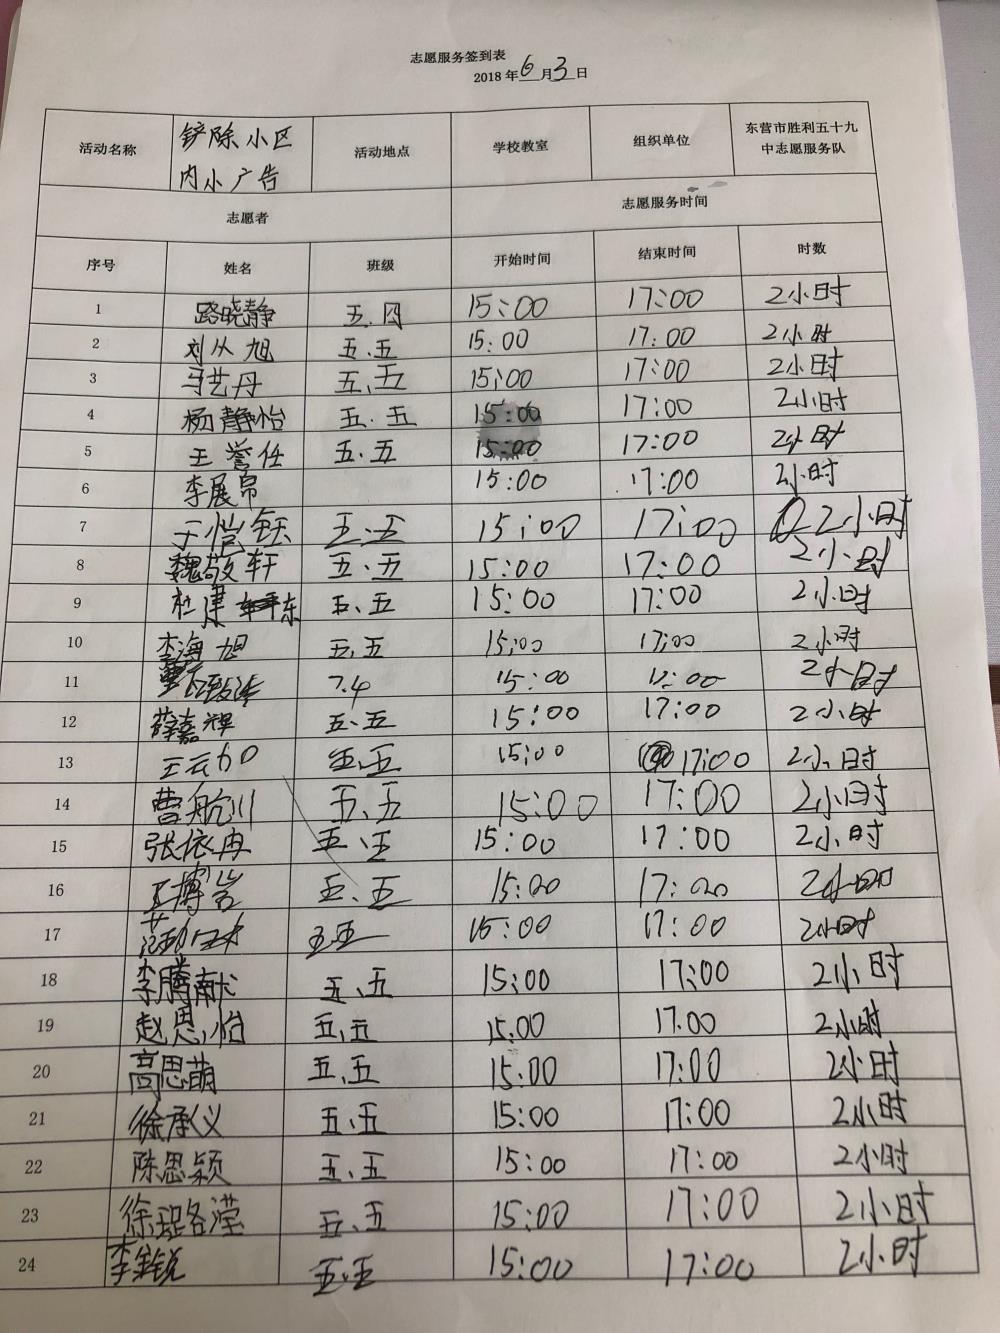 志愿服务签到表
2018 年 6 月 3 日
活动名称 铲除小区内小广告 活动地点 学校教室 组织单位 东营市胜利五十九中志愿服务队
志愿者 志愿服务时间
序号 姓名 班级 开始时间 结束时间 时数
1 路晓静 五.四 15:00 17:00 2小时
2 刘从旭 五、五 15:00 17:00 2小时
3 马艺丹 五、五 15:00 17:00 2小时
4 杨静怡 五.五 15:00 17:00 2小时
5 王誉任 五.五 15:00 17:00 2小时
6 李展帛 15:00 17:00 2小时
7 于恺钰 五、五 15:00 17:00 2小时
8 魏敬轩 五、五 15:00 17:00 2小时
9 杜津东 五、五 15:00 17:00 2小时
10 李海旭 五、五 15:00 17:00 2小时
11 7.4 15:00 17:00 2小时
12 薛嘉辉 五、五 15:00 17:00 2小时
13 王云加 五、五 15:00 17:00 2小时
14 曹航川 五、五 15:00 17:00 2小时
15 张依冉 五、五 15:00 17:00 2小时
16 王博岩 五、五 15:00 17:00 2小时
17 五五 15:00 17:00 2小时
18 李腾献 五、五 15:00 17:00 2小时
19 赵思怡 五、五 15:00 17:00 2小时
20 高思萌 五、五 15:00 17:00 2小时
21 徐承义 五、五 15:00 17:00 2小时
22 陈思颖 五、五 15:00 17:00 2小时
23 徐珺洺滢 五、五 15:00 17:00 2小时
24 李鉴锐 五、五 15:00 17:00 2小时